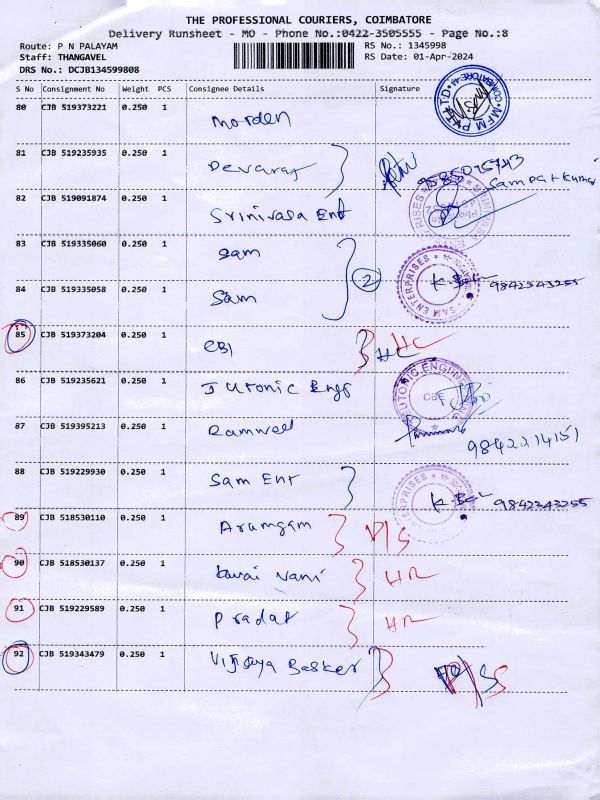 THE PROFESSIONAL COURIERS, COIMBATORE
Delivery Runsheet - MO - Phone No.:0422-3505555 - Page No.:8
Route: P N PALAYAM RS No.: 1345998
Staff: THANGAVEL RS Date: 01-Apr-2024
DRS No.: DCJB134599808
S No Consignment No Weight PCS Consignee Details Signature
80 CJB 519373221 0.250 1 Morden
MFM PVT LTD COIMBATORE
81 CJB 519235935 0.250 1 Devaraj
Sampatkumar
82 CJB 519091874 0.250 1 Srinivasa Ent
83 CJB 519335060 0.250 1 Sam
2
SAM ENTERPRISES 9842243255
84 CJB 519335058 0.250 1 Sam
85 CJB 519373204 0.250 1 CBI
86 CJB 519235621 0.250 1 J Utonic Engg
UTONIC ENGINEERING CBE
87 CJB 519395213 0.250 1 Ramwel 9842214151
88 CJB 519229930 0.250 1 Sam Ent
ENTERPRISES 9842243255
89 CJB 518530110 0.250 1 Arumgam P/S
90 CJB 518530137 0.250 1 Kovai Nani HR
91 CJB 519229589 0.250 1 Pradaf HR
92 CJB 519343479 0.250 1 Vijaya Basker P/S